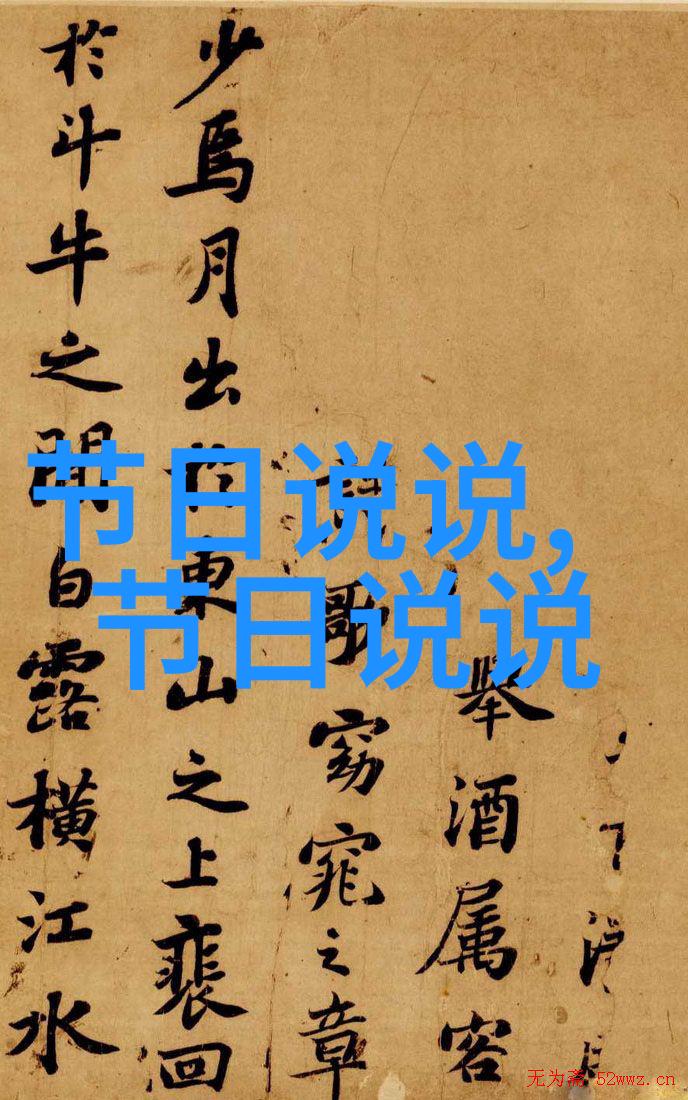 节日说说,
节日说说
舉酒属客
歌窈窕之章
少焉月出於東山之上裴回
於斗牛之間白露橫江水
无为斋 52wwz.cn